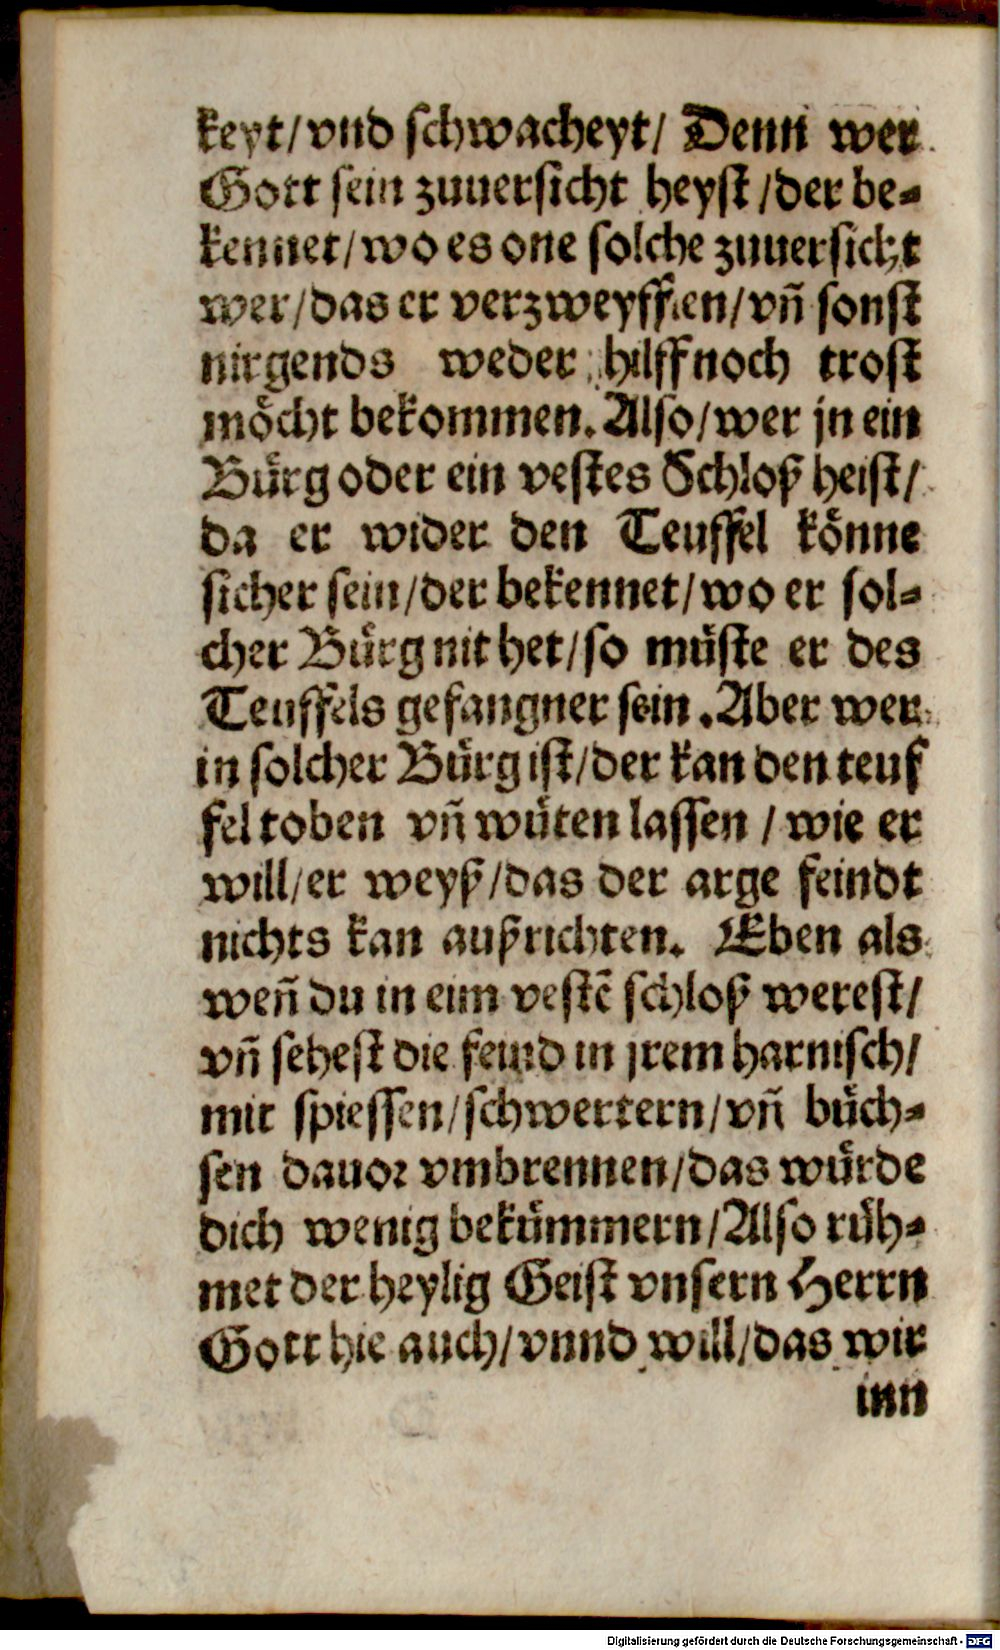 keyt/ vnd schwacheyt/ Denn wer
Gott sein zuuersicht heyst /der be⸗
kennet/ wo es one solche zuuersicht
wer/ das er verzweyfflen/ vñ sonst
nirgends weder hilff noch trost
möcht bekommen. Also/ wer jn ein
Bürg oder ein vestes Schloß heist/
da er wider den Teuffel könne
sicher sein/ der bekennet/ wo er sol⸗
cher Bürg nit het/ so müste er des
Teuffels gefangner sein. Aber wer
in solcher Bürg ist/ der kan den teuf
fel toben vñ wüten lassen / wie er
will/ er weyß /das der arge feindt
nichts kan außrichten. Eben als
weñ du in eim vestē schloß werest/
vñ sehest die feind in jrem harnisch/
mit spiessen/ schwertern/ vñ büch⸗
sen dauor vmbrennen/ das würde
dich wenig bekümmern/ Also rüh⸗
met der heylig Geist vnsern Herrn
Gott hie auch/ vnnd will/ das wir
inn
Digitalisierung gefördert durch die Deutsche Forschungsgemeinschaft - DFG